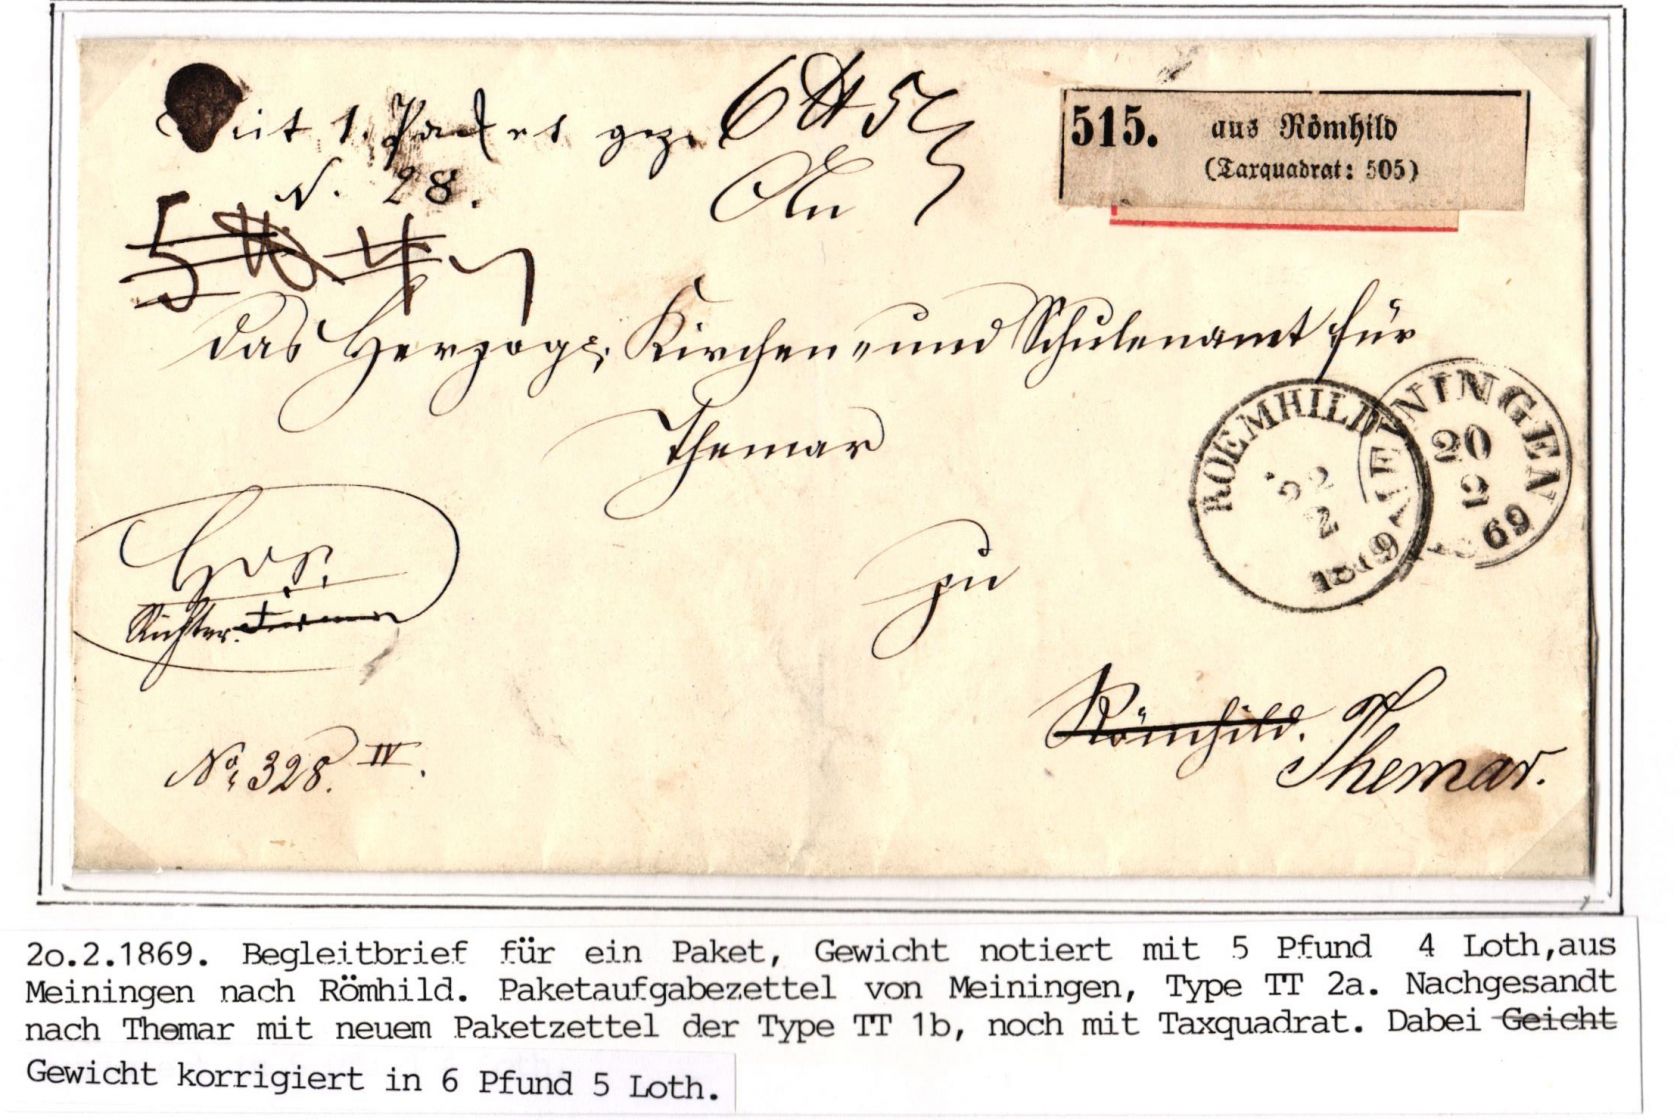 mit 1. Paket gez. 6 ℔ 5
N. 28.
515. aus Römhild
(Taxquadrat: 505)
An
5 ℔ 4
das Herzogl. Kirchen- und Schulenamt für
Themar
zu
Römhild. Themar.
ROEMHILD
22
2
1869
MEININGEN
20
2
69
H. d. S.
Richter.
No. 328. IV.
2o.2.1869. Begleitbrief für ein Paket, Gewicht notiert mit 5 Pfund 4 Loth,aus
Meiningen nach Römhild. Paketaufgabezettel von Meiningen, Type TT 2a. Nachgesandt
nach Themar mit neuem Paketzettel der Type TT 1b, noch mit Taxquadrat. Dabei Geicht
Gewicht korrigiert in 6 Pfund 5 Loth.